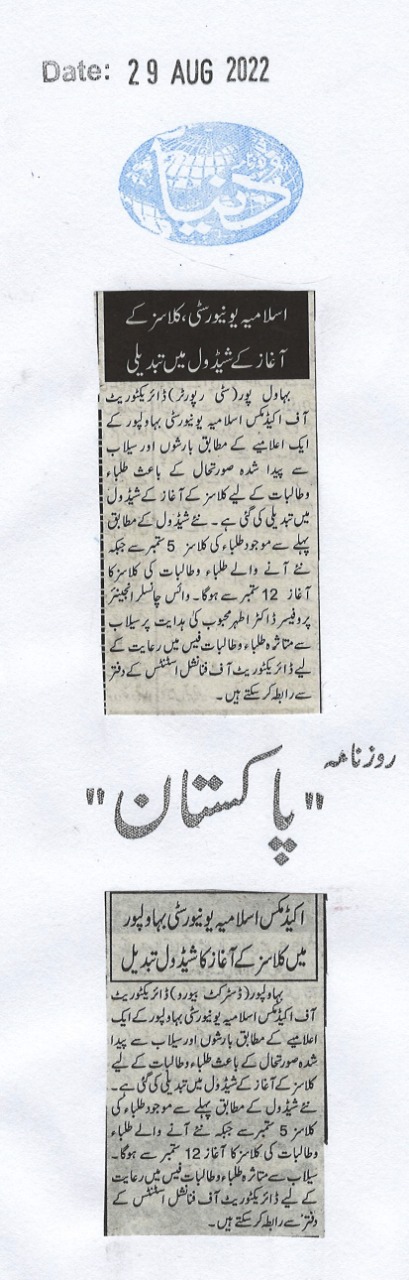 Date: 29 AUG 2022
دنیا
اسلامیہ یونیورسٹی، کلاسز کے
آغاز کے شیڈول میں تبدیلی
بہاول پور (سٹی رپورٹر) ڈائریکٹوریٹ
آف اکیڈمکس اسلامیہ یونیورسٹی بہاولپور کے
ایک اعلامیے کے مطابق بارشوں اور سیلاب
سے پیدا شدہ صورتحال کے باعث طلباء
وطالبات کے لیے کلاسز کے آغاز کے شیڈول
میں تبدیلی کی گئی ہے۔ نئے شیڈول کے مطابق
پہلے سے موجود طلباء کی کلاسز 5 ستمبر سے جبکہ
نئے آنے والے طلباء وطالبات کی کلاسز کا
آغاز 12 ستمبر سے ہوگا۔ وائس چانسلر انجینئر
پروفیسر ڈاکٹر اطہر محبوب کی ہدایت پر سیلاب
سے متاثرہ طلباء وطالبات فیس میں رعایت کے
لیے ڈائریکٹوریٹ آف فنانشل اسسٹنس کے دفتر
سے رابطہ کر سکتے ہیں۔
روزنامہ
"پاکستان"
اکیڈمکس اسلامیہ یونیورسٹی بہاولپور
میں کلاسز کے آغاز کا شیڈول تبدیل
بہاولپور (ڈسٹرکٹ بیورو) ڈائریکٹوریٹ
آف اکیڈمکس اسلامیہ یونیورسٹی بہاولپور کے ایک
اعلامیے کے مطابق بارشوں اور سیلاب سے پیدا
شدہ صورتحال کے باعث طلباء وطالبات کے لیے
کلاسز کے آغاز کے شیڈول میں تبدیلی کی گئی ہے۔
نئے شیڈول کے مطابق پہلے سے موجود طلباء کی
کلاسز 5 ستمبر سے جبکہ نئے آنے والے طلباء
وطالبات کی کلاسز کا آغاز 12 ستمبر سے ہوگا۔
سیلاب سے متاثرہ طلباء وطالبات فیس میں رعایت
کے لیے ڈائریکٹوریٹ آف فنانشل اسسٹنس کے
دفتر سے رابطہ کر سکتے ہیں۔